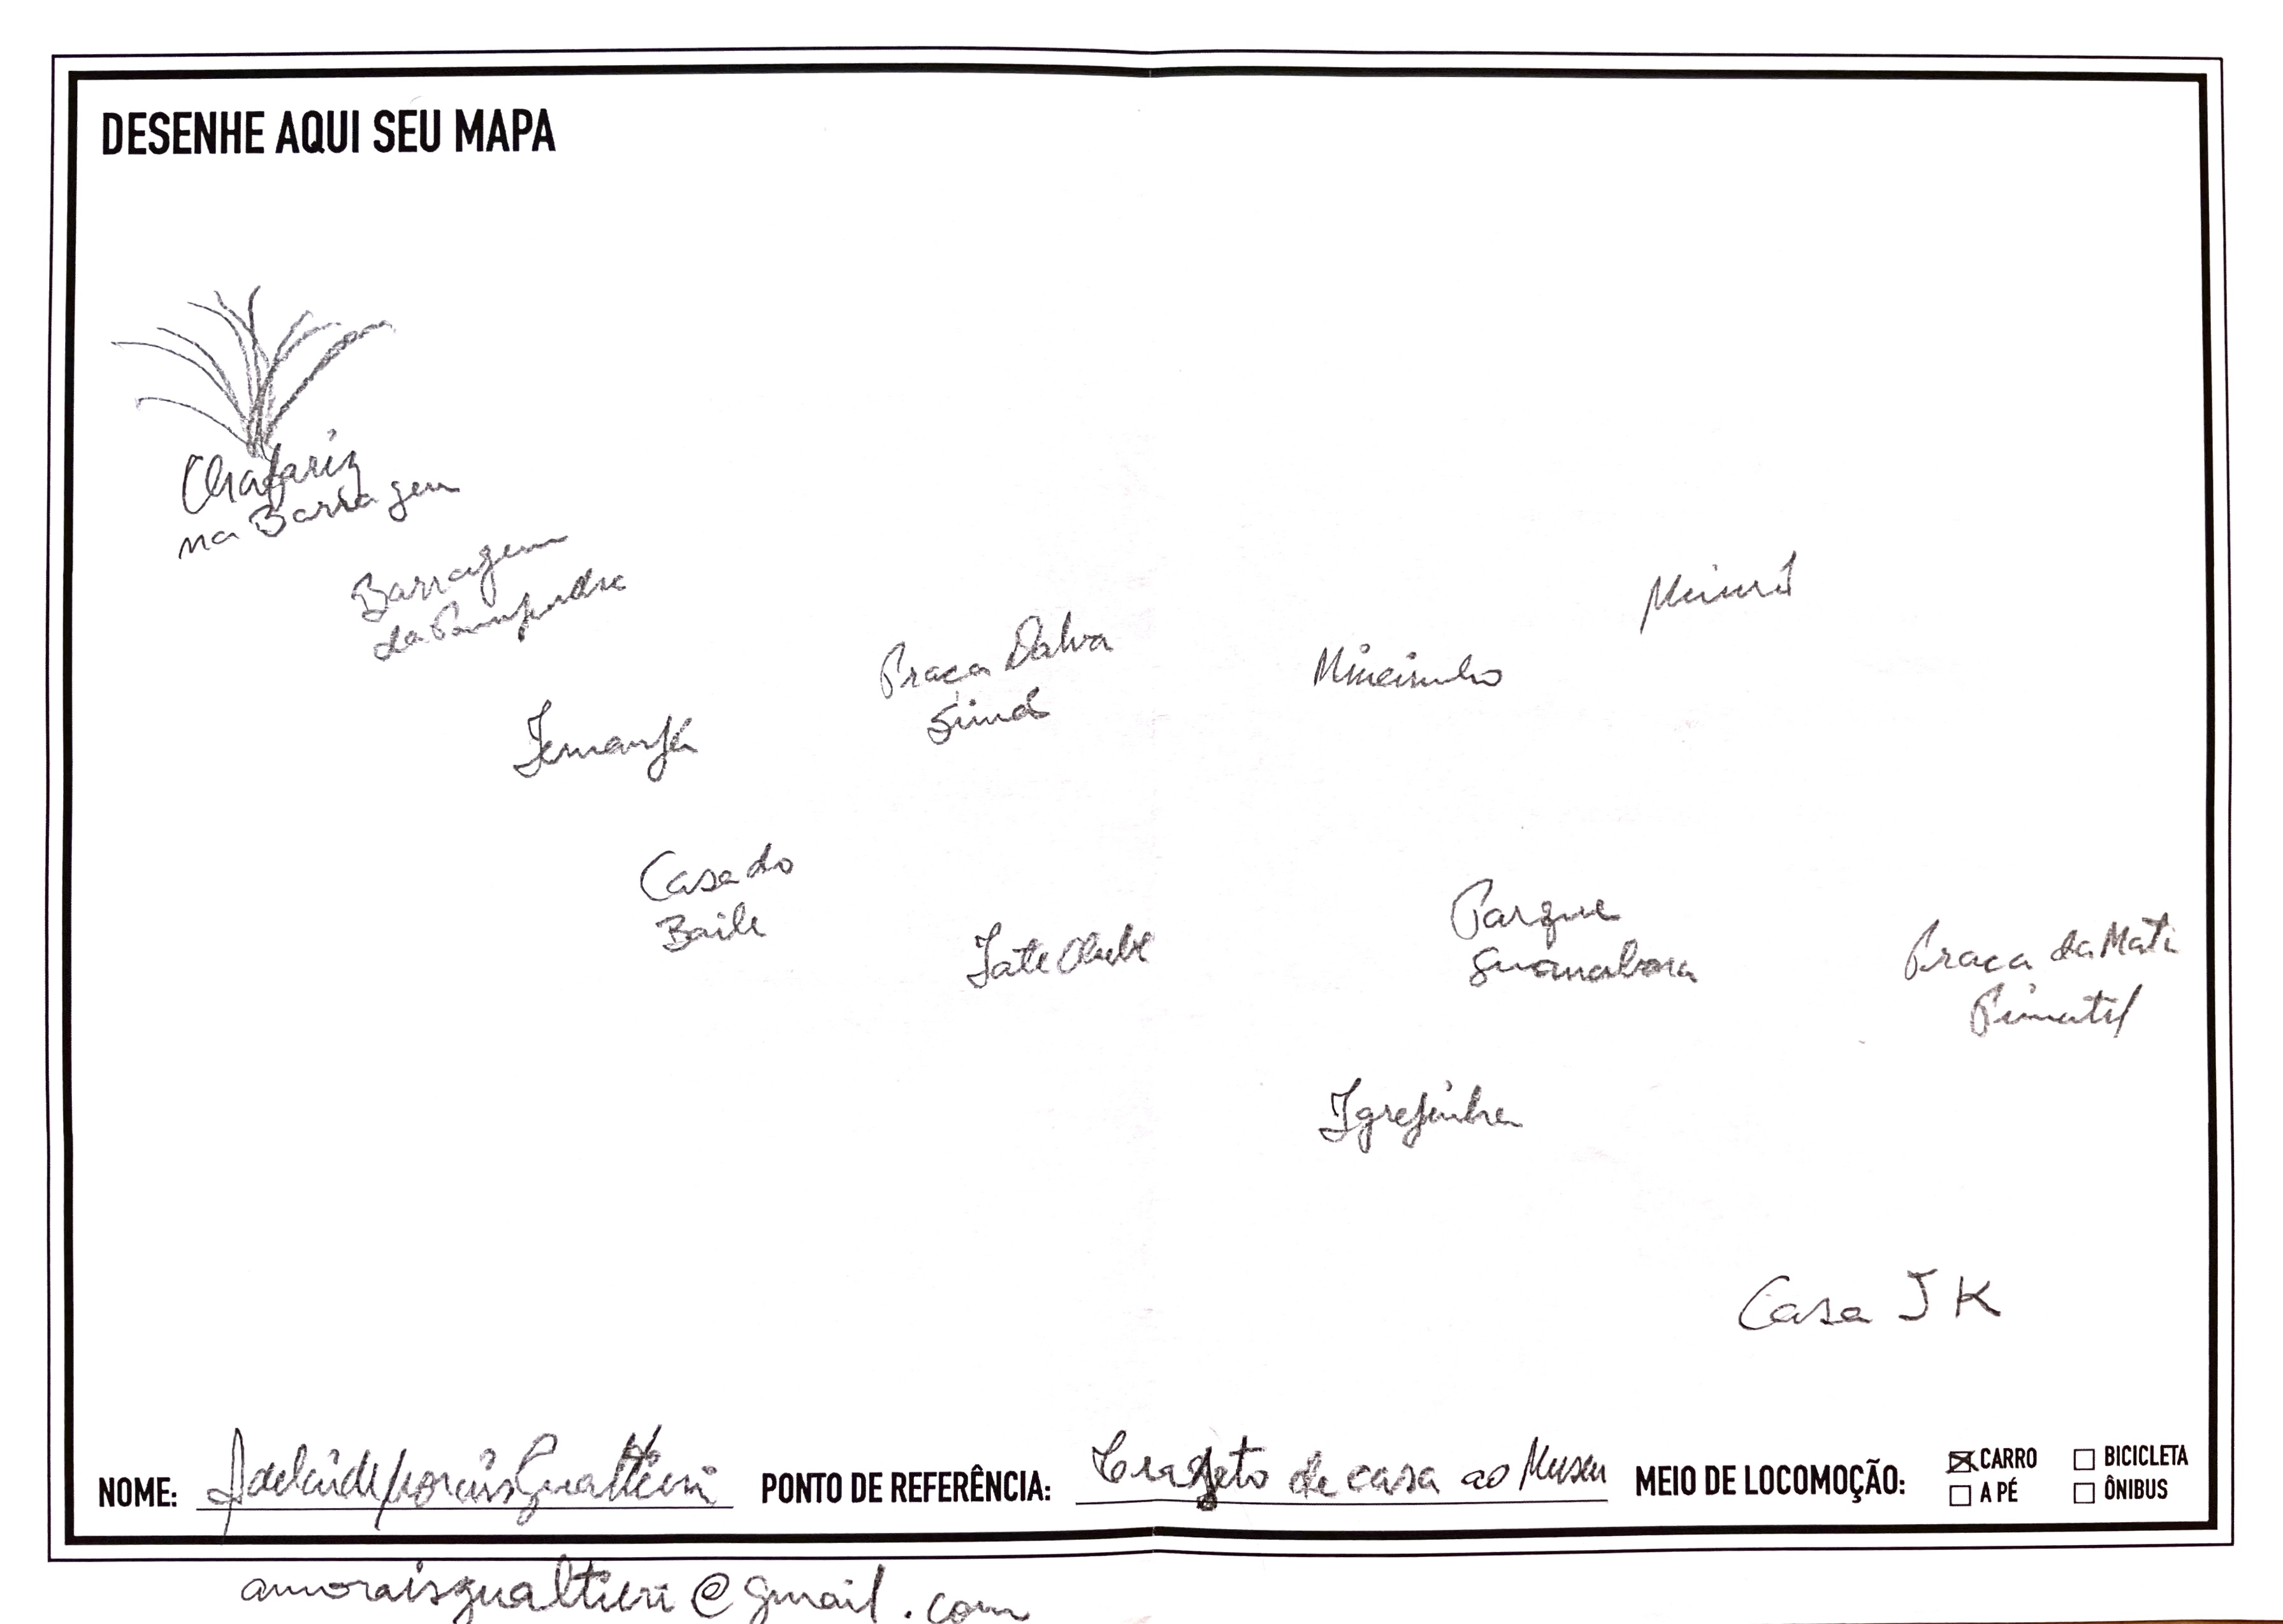 DESENHE AQUI SEU MAPA
Chafariz
na Barragem
Barragem
da Pampulha
Iemanjá
Praça Dalva
Simão
Mineirinho
Mineirão
Casa do
Baile
Iate Clube
Parque
Guanabara
Praça da Mata
Pimentel
Igrejinha
Casa JK
NOME: Adelaide Morais Gualtieri PONTO DE REFERÊNCIA: Trajeto de casa ao Museu MEIO DE LOCOMOÇÃO: CARRO BICICLETA
A PÉ ÔNIBUS
amoraisgualtieri@gmail.com